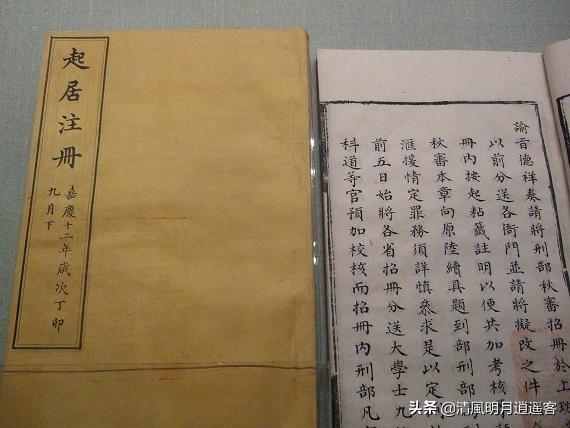 起居注冊
嘉慶十二年歲次丁卯
九月下
諭音德祥奏請將刑部秋審招冊於上班
以前分送各衙門並請將擬改之件
冊內按起粘籤註明以便共加考核
秋審本章向原陸續具題到部刑部
滙援情定罪務須詳慎叅求是以定
前五日始將各省招冊分送大學士九
科道等官預加校核而招冊內刑部凡
头条@清風明月逍遥客